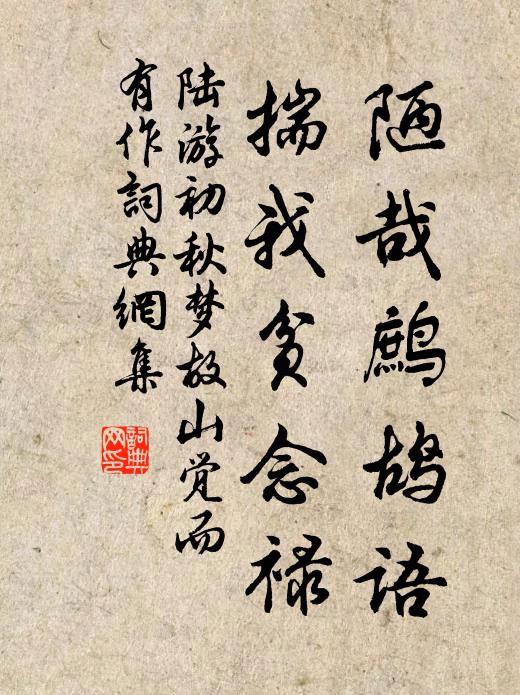 陋哉鹧鸪语
揣我贫念禄
陆游初秋梦故山觉而
有作詞典網集
詞典
网印